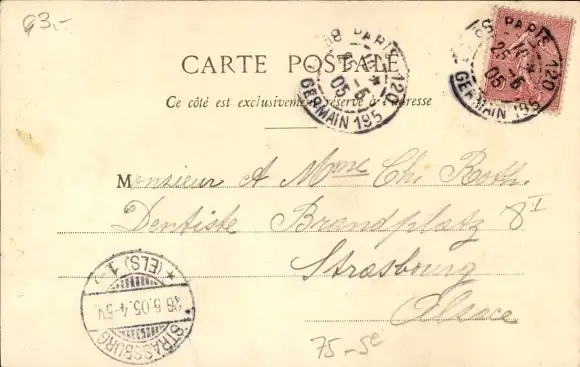 93.-
CARTE POSTALE
Ce côté est exclusivement réservé à l'adresse
PARIS 120
25 -5 05
Bd GERMAIN 195
PARIS 120
25 -5 05
GERMAIN 195
Monsieur & Mme Ch. Roth.
Dentiste Brandplatz 8 I
Strasbourg
Alsace
STRASSBURG
* (ELS) 1
26.5.05.4-5V.
75-5e